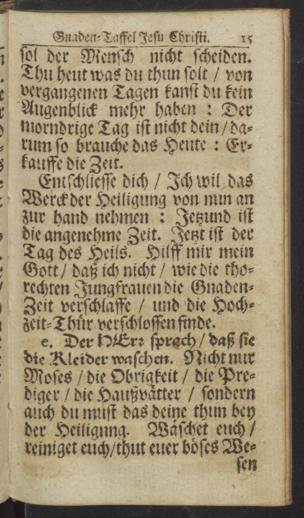 Gnaden-Taffel Jesu Christi. 15
sol der Mensch nicht scheiden.
Thu heut was du thun solt / von
vergangenen Tagen kanst du kein
Augenblick mehr haben : Der
morndrige Tag ist nicht dein / da-
rum so brauche das Heute : Er-
kauffe die Zeit.
Entschliesse dich / Ich wil das
Werck der Heiligung von nun an
zur hand nehmen : Jetzund ist
die angenehme Zeit. Jetzt ist der
Tag des Heils. Hilff mir mein
Gott / daß ich nicht / wie die tho-
rechten Jungfrauen die Gnaden-
Zeit verschlaffe / und die Hoch-
zeit-Thür verschlossen finde.
e. Der HErr sprach / daß sie
die Kleider waschen. Nicht nur
Moses / die Obrigkeit / die Pre-
diger / die Haußvätter / sondern
auch du must das deine thun bey
der Heiligung. Wäschet euch /
reiniget euch / thut euer böses We-
sen